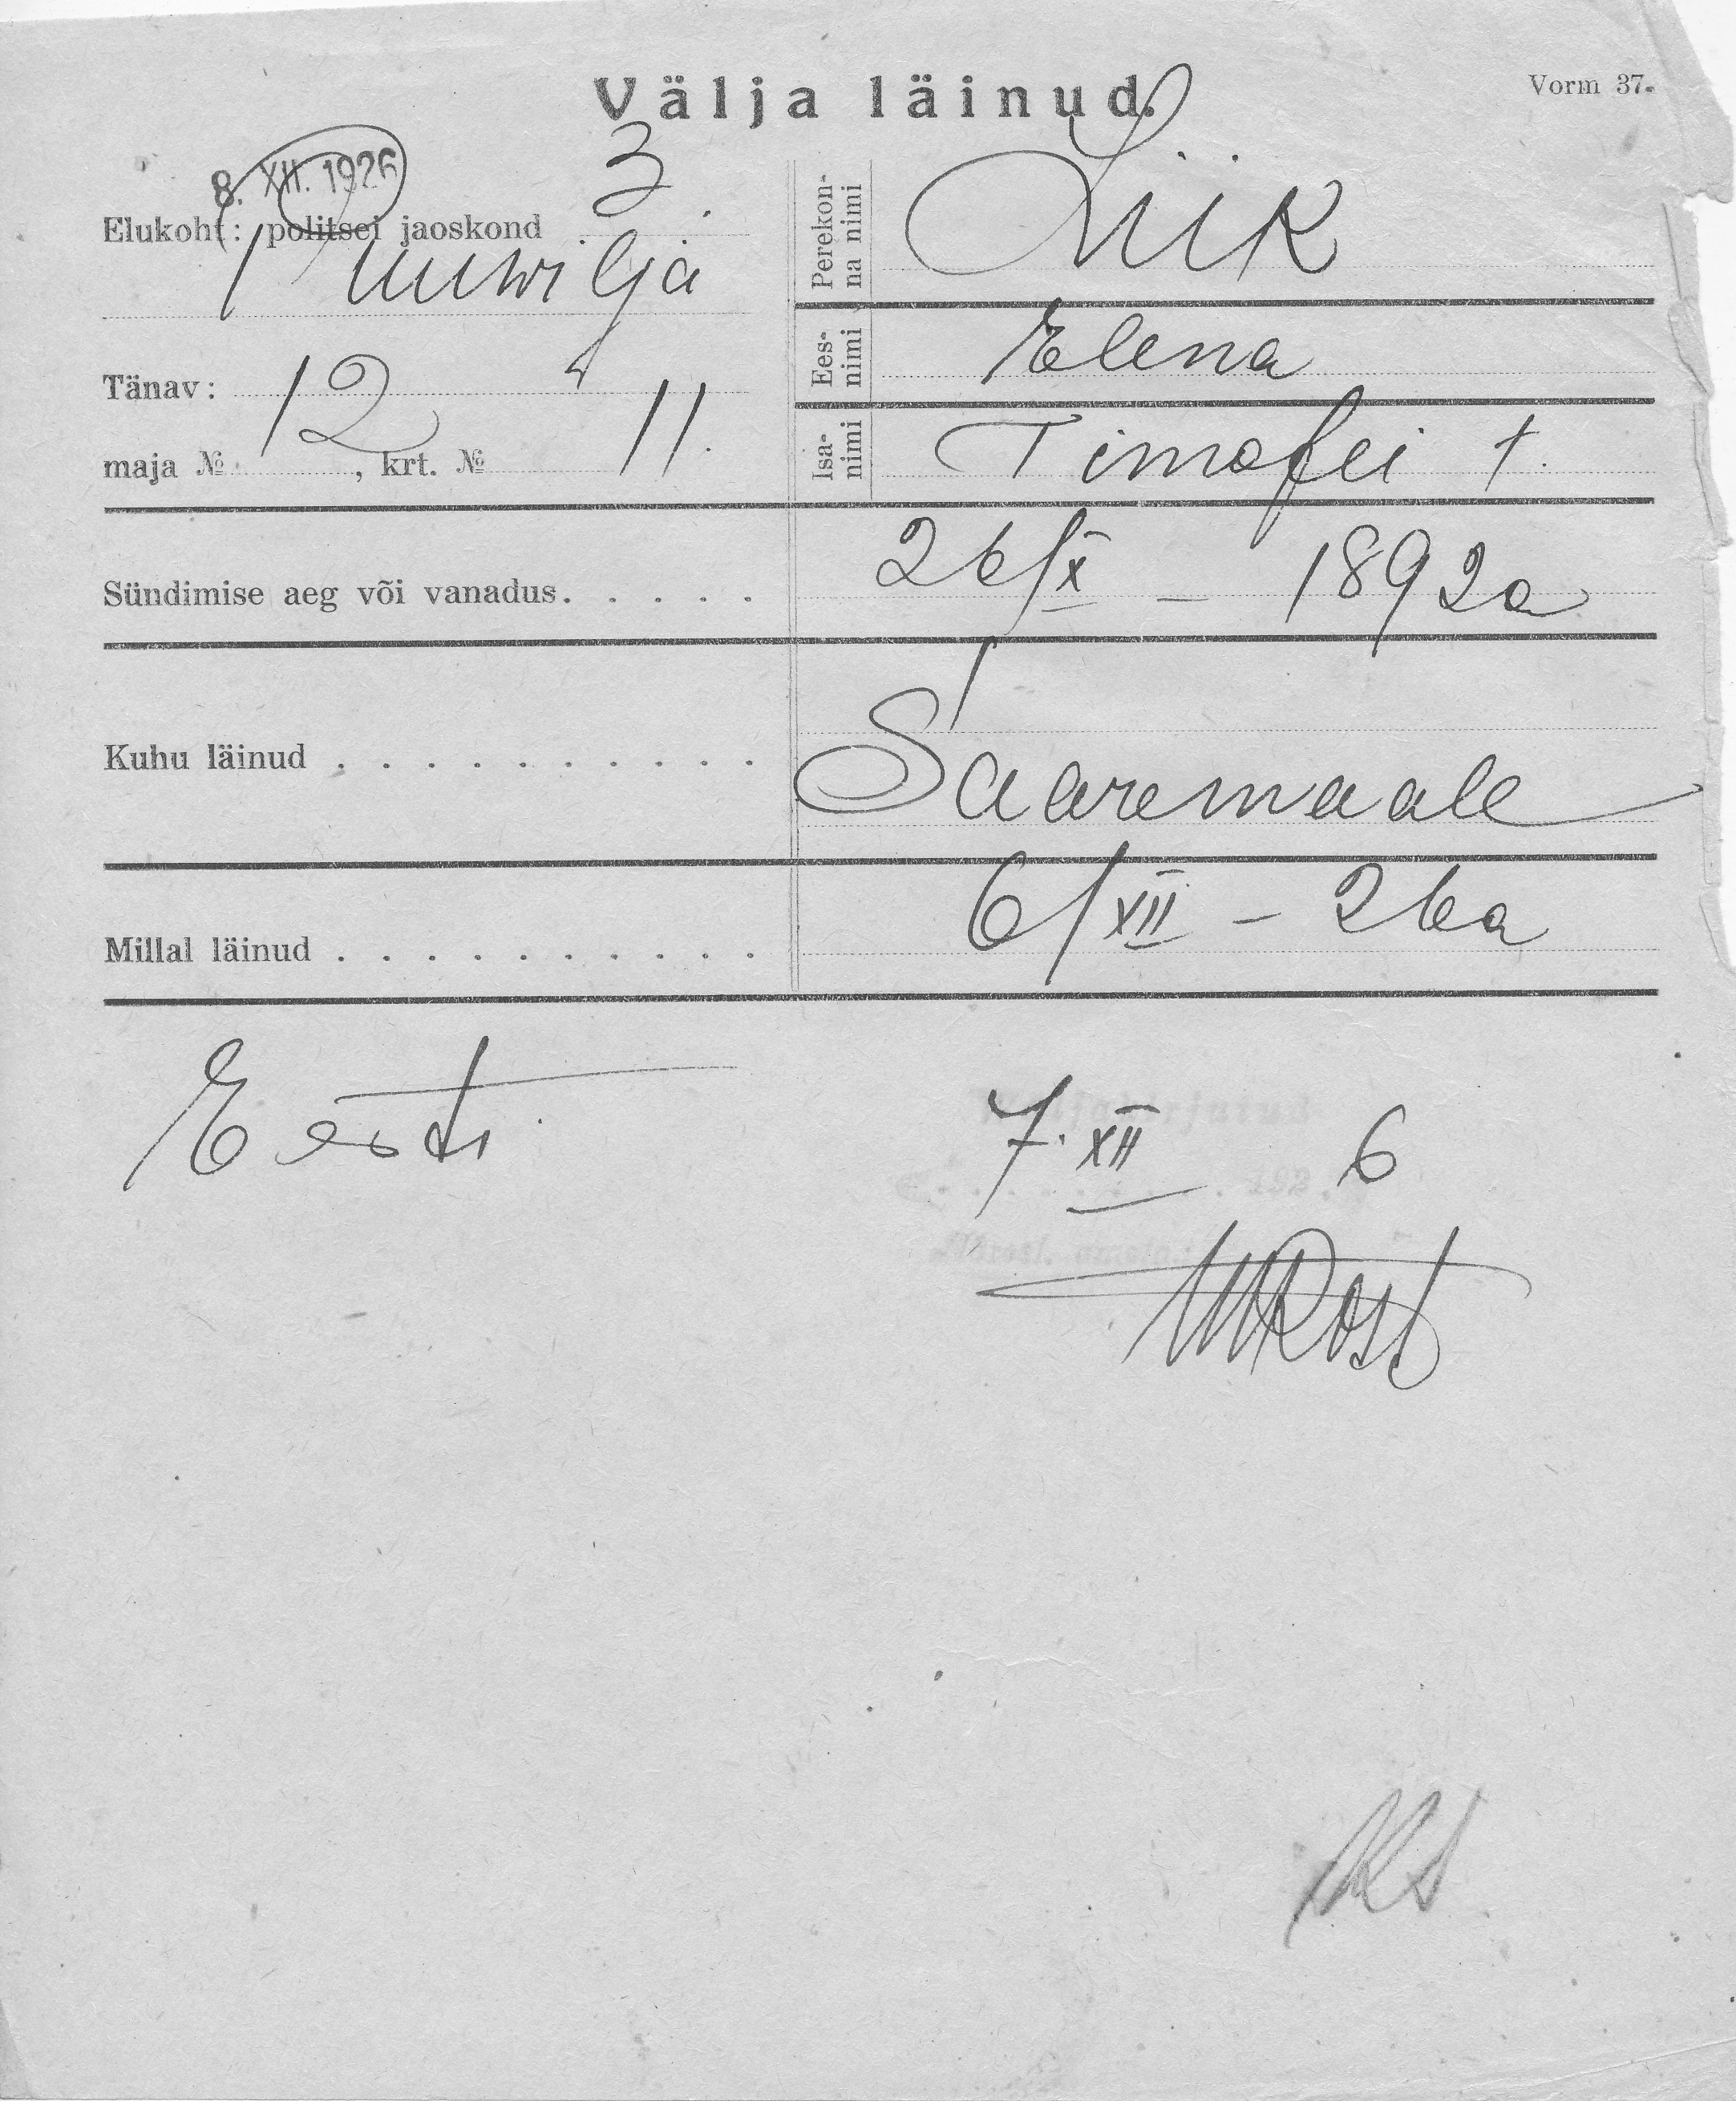 Välja läinud.
Vorm 37.
8. XII. 1926
Elukoht: politsei jaoskond 3
Puuwilja
Tänav:
maja № 12, krt. № 11.
Perekon-
na nimi
Liik
Ees-
nimi
Elena
Isa-
nimi
Timofei †.
Sündimise aeg või vanadus. . . . . 26/X – 1892a
Kuhu läinud . . . . . . . . . . Saaremaale
Millal läinud . . . . . . . . . . 6/XII – 26a
Eesti
7. XII 6